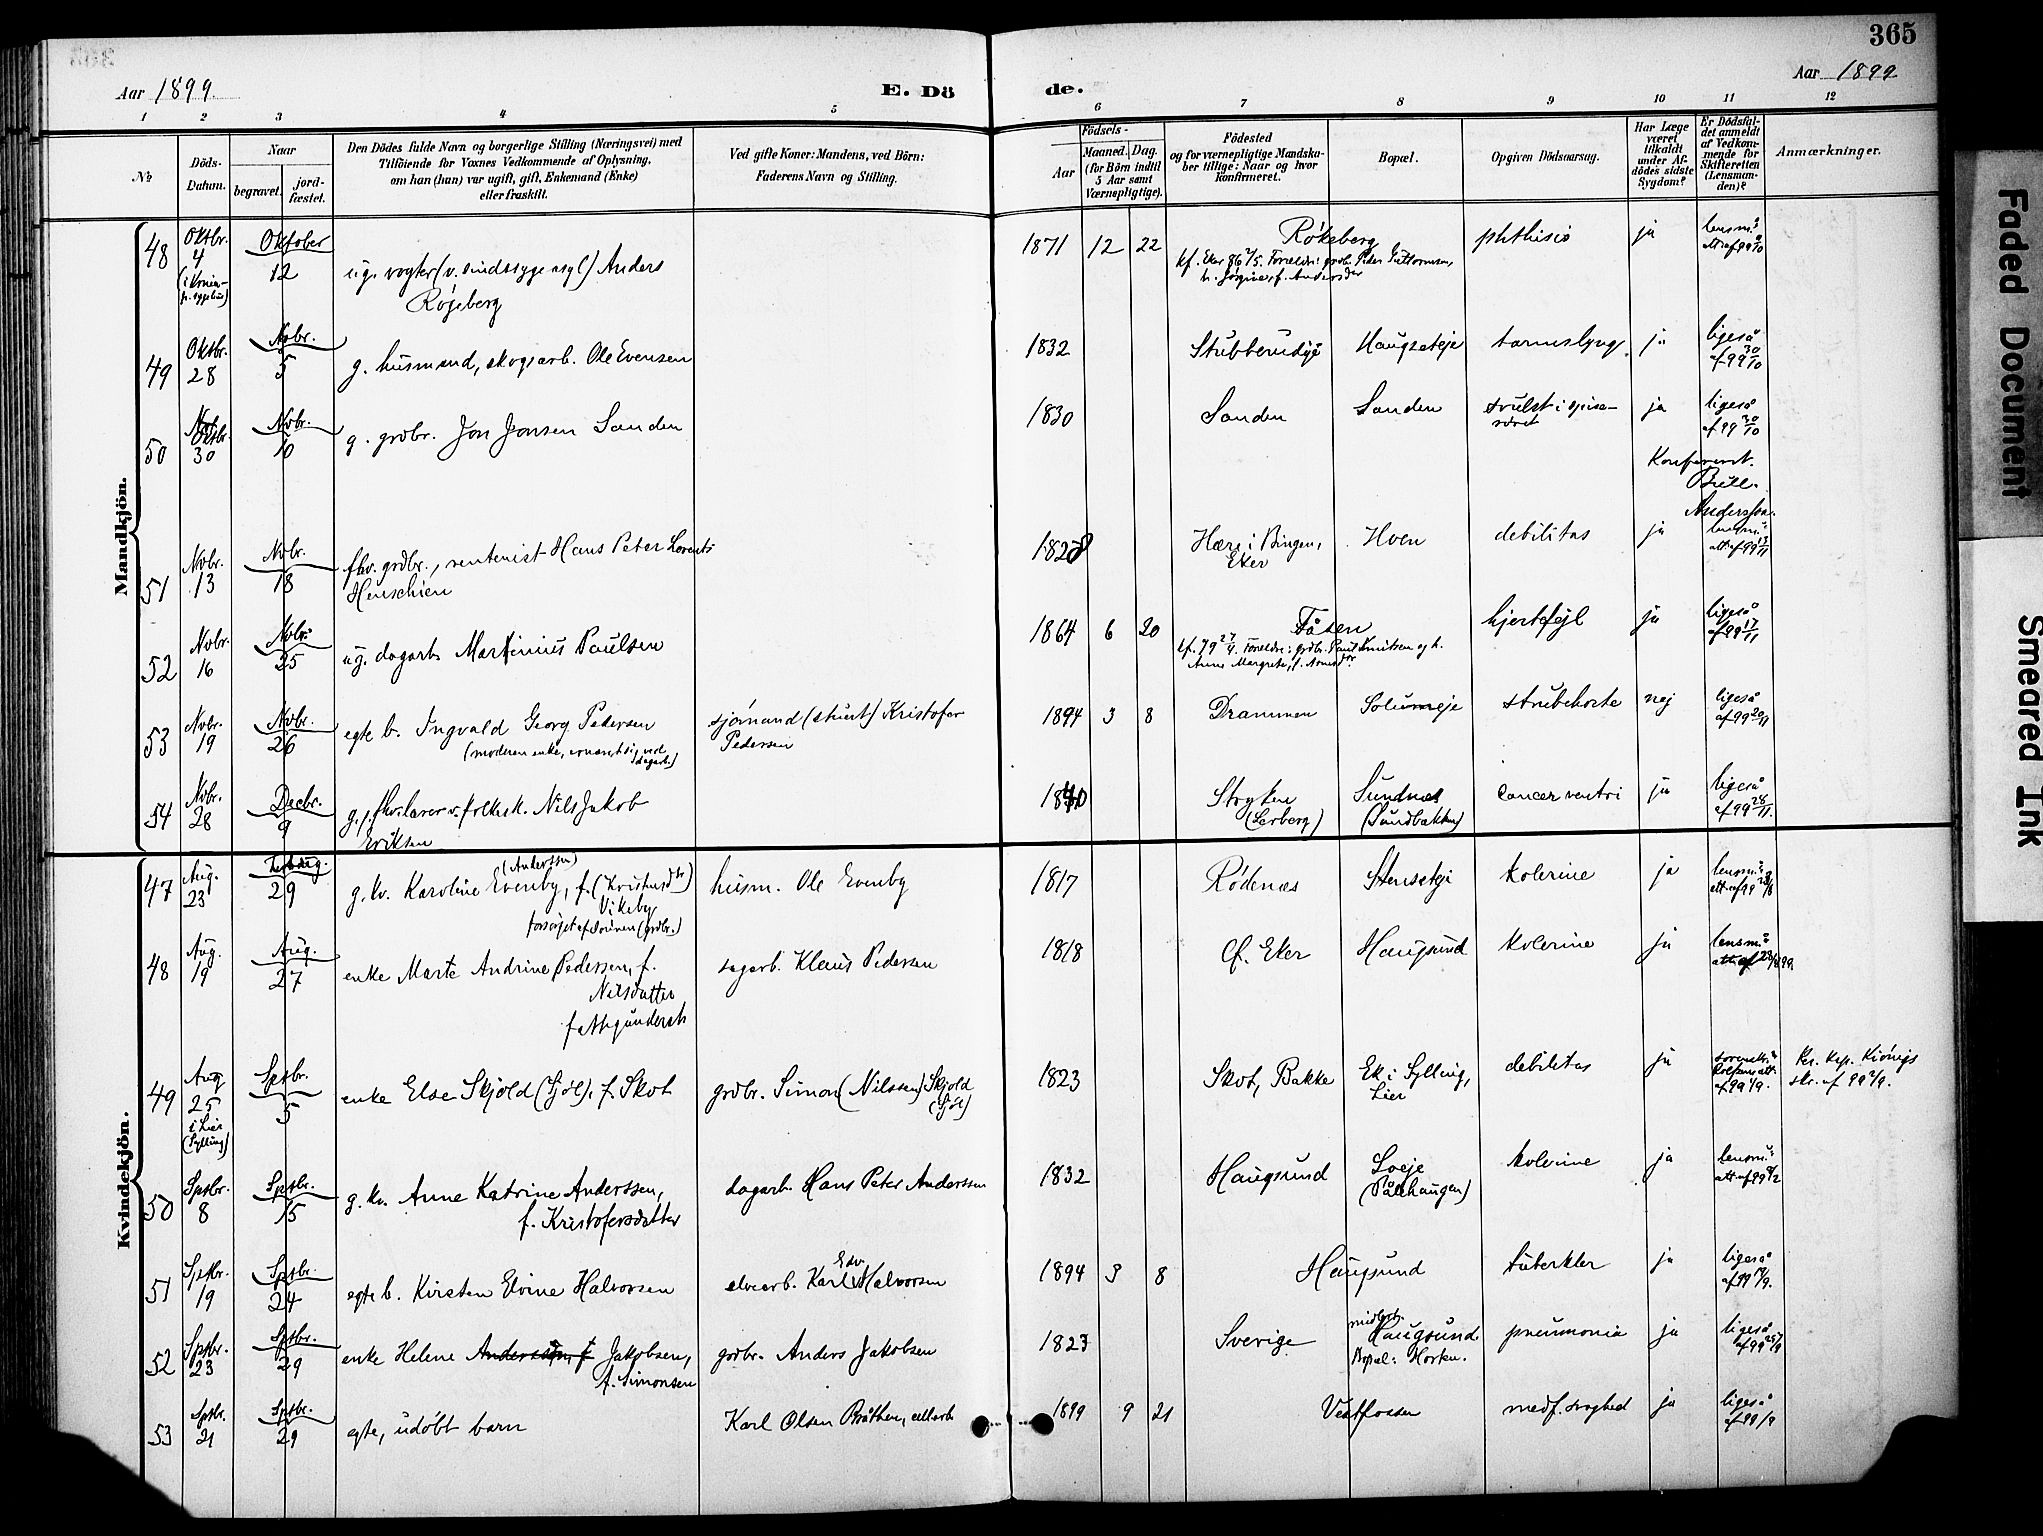 365
Aar 1899.
E. Dö
de.
Aar 1899
1 2 3 4 5 6 7 8 9 10 11 12
No
Döds-
Datum.
Naar
begravet.
jord-
fæstet.
Den Dödes fulde Navn og borgerlige Stilling (Næringsvei) med
Tilföiende for Voxnes Vedkommende af Oplysning,
om han (hun) var ugift, gift, Enkemand (Enke)
eller fraskilt.
Ved gifte Koner: Mandens, ved Börn:
Faderens Navn og Stilling.
Födsels-
Aar
Maaned.
Dag.
(for Börn indtil
5 Aar samt
Værnepligtige).
Födested
og for værnepligtige Mandska-
ber tillige: Naar og hvor
konfirmeret.
Bopæl.
Opgiven Dödsaarsag.
Har Læge
været
tilkaldt
under Af-
dödes sidste
Sygdom?
Er Dödsfal-
det anmeldt
af Vedkom-
mende for
Skifteretten
(Lensman-
den)?
Anmærkninger.
Mandkjön.
48 Oktbr. 4 Oktober 12 ug. vogter (v. sindssygeasyl) Anders
Røgeberg
1871 12 22 Røkeberg phthisis ja
kf. Eker 86 Forældre: grdb. Peder Guttormsen,
49 Oktbr. 28 Novbr. 5 g. husmand, skogsarb. Ole Evensen 1832 Stubberudeje Haugseteje ja ligeså af 99 30/10
50 Oktbr. 30 Nvbr. 10 g. grdbr. Jon Jonsen Sanden 1830 Sanden Sanden svulst i spise-
røret ja ligeså af 99 30/10
51 Nvbr. 13 Nvbr. 18 fhv. grdbr., rentenist Hans Peter Lorents
Henschien
1828 Hære i Bingen,
Eker
Hoen debilitas ja
52 Nvbr. 16 Nvbr. 25 ug. dagarb. Martinius Paulsen 1864 6 20 Tåsen hjertefejl ja ligeså af 99 17/11
53 Nvbr. 19 Nvbr. 26 egte b. Ingvald Georg Pedersen
(moderen enke, ernærer sig ved
dagarb.)
sjømand (stuert) Kristofer
Pedersen
1894 3 8 Drammen Solumeje strubehoste nej ligeså af 99 20/11
54 Nvbr. 28 Decbr. 9 g. fhv. lærer v. folkesk. Nils Jakob
Eriksen
1840 Stryken
(Lerberg)
Sundnes
(Sundbakken)
Cancer ventri ja ligeså af 99 28/11.
Kvindekjön.
47 Aug. 23 29 g. kv. Karoline Evenby, (Anderssen) f. (Kristensdtr)
Vikeby
forsørget af sønnen (grdbr.)
husm. Ole Evenby 1817 Rødenæs Stenseteje kolerine ja
48 Aug. 19 Aug. 27 enke Marte Andrine Pedersen, f.
Nilsdatter
fattigunderst.
sagarb. Klaus Pedersen 1818 Ø. Eker Haugsund kolerine ja
49 Aug 25 i Lier (Sylling) Sptbr. 5 enke Else Skjøld (Sjøl), f. Skot grdbr. Simon (Nilssen) Skjold
(Sjøl)
1823 Skot, Bakke Ek i Sylling,
Lier
debilitas ja
50 Sptbr. 8 Sptbr. 15 g. kv. Anne Katrine Anderssen,
f. Kristofersdatter
dagarb. Hans Peter Anderssen 1832 Haugsund Loeje
(Pålshaugen)
kolerine ja
51 Sptbr. 19 Sptbr. 24 egte b. Kirsten Elvine Halvorsen elvearb. Karl Edv. Halvorsen 1894 3 8 Haugsund tuberkler ja ligeså
52 Sptbr. 23 Sptbr. 29 enke Helene Anderssen, f Jakobsen,
f. Simonsen
grdbr. Anders Jakobsen 1827 Sverige midlert.
Haugsund.
Bopæl: Horken.
pneumonia ja ligeså
53 Sptbr. 21 Sptbr. 29 egte, udøbt barn Karl Olsen Bråthen, 1899 9 21 Vestfossen medf. svaghed ja ligeså
Faded Document
Smeared Ink